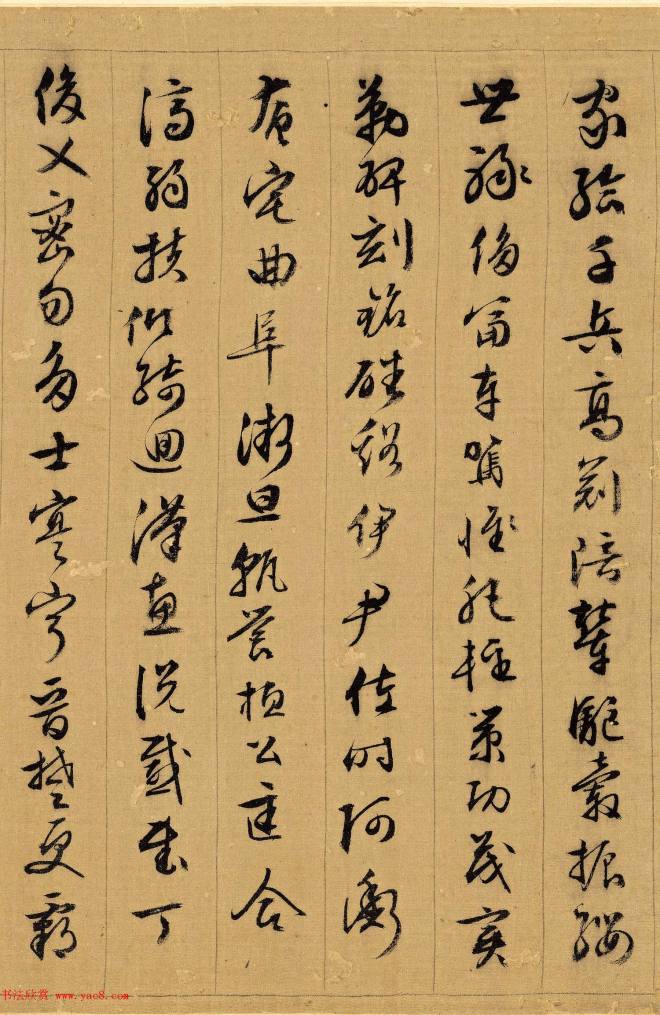 家給千兵高冠陪輦驅轂振纓
世祿侈富車駕惟肥輕策功茂實
勒碑刻銘磻谿伊尹佐時阿衡
奄宅曲阜微旦孰營桓公匡合
濟弱扶傾綺迴漢惠說感武丁
俊乂密勿多士寔寧晉楚更霸
书法欣赏 www.yac8.com